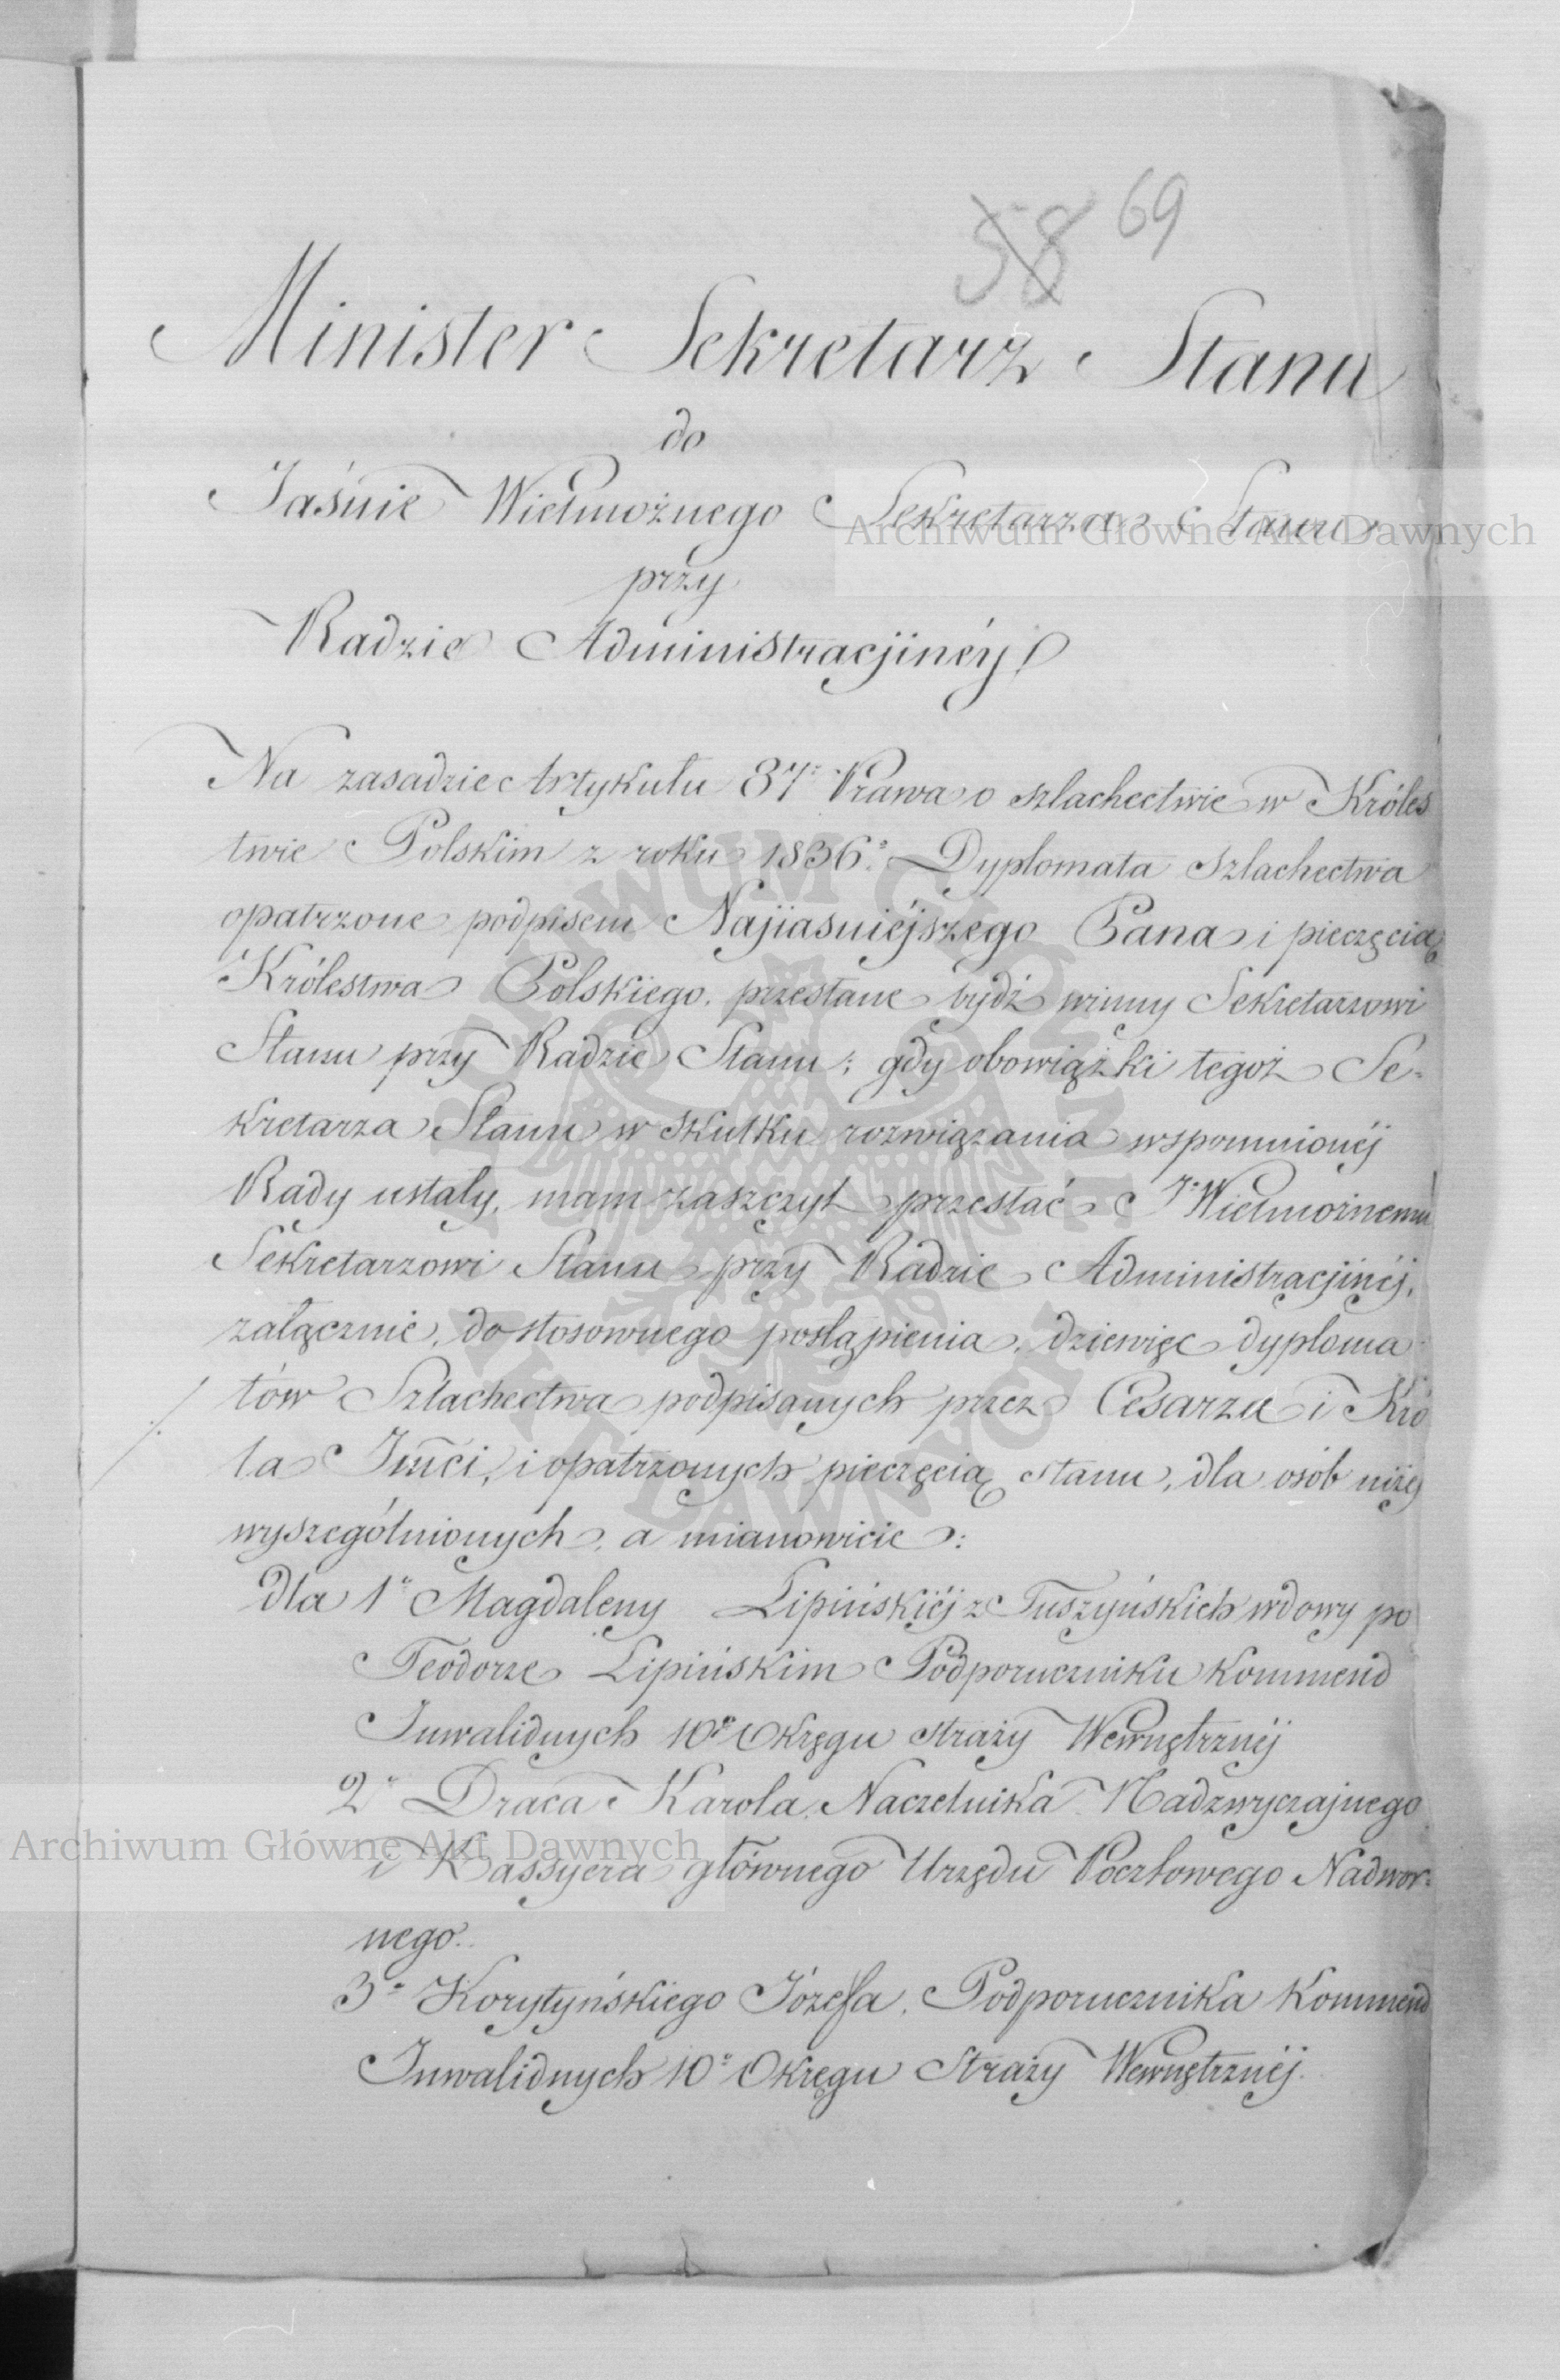 58 69
Minister Sekretarz Stanu
do
Jaśnie Wielmożnego Sekretarza Stanu
Archiwum Główne Akt Dawnych
przy
Radzie Administracjinéy
Na zasadzie Artykułu 37º Prawa o szlachectwie w Króles
twie Polskim z roku 1836º Dyplomata Szlachectwa
opatrzone podpisem Najiasniéjszego Pana i pieczęcią
Królestwa Polskiego, przesłane bydź winny Sekretarzowi
Stanu przy Radzie Stanu; gdy obowiązki tegoż Se-
kretarza Stanu w skutku rozwiązania wspomnionéj
Rady ustały, mam zaszczyt przesłać Jº Wielmożnemu
Sekretarzowi Stanu przy Radzie Administracjinéj,
załącznie, do stosownego postąpienia, dziewięć dyploma
tów Szlachectwa podpisanych przez Cesarza i Kró
la Jmci, i opatrzonych pieczęcią stanu, dla osób niżej
wyszególnionych, a mianowicie:
dla 1º Magdaleny Lipińskiéj z Tuszyńskich wdowy po
Teodorze Lipińskim Podporuczniku Kommend
Inwalidnych 10º Okręgu straży Wewnętrznéj
2º Draca Karola, Naczelnika Nadzwyczajnego
Archiwum Główne Akt Dawnych
i Kassyera głównego Urzędu Pocztowego Nadwor-
nego.
3º Korytyńskiego Józefa, Podporucznika Kommend
Inwalidnych 10º Okręgu Straży Wewnętrznéj.
ARCHIWUM GŁÓWNE AKT DAWNYCH